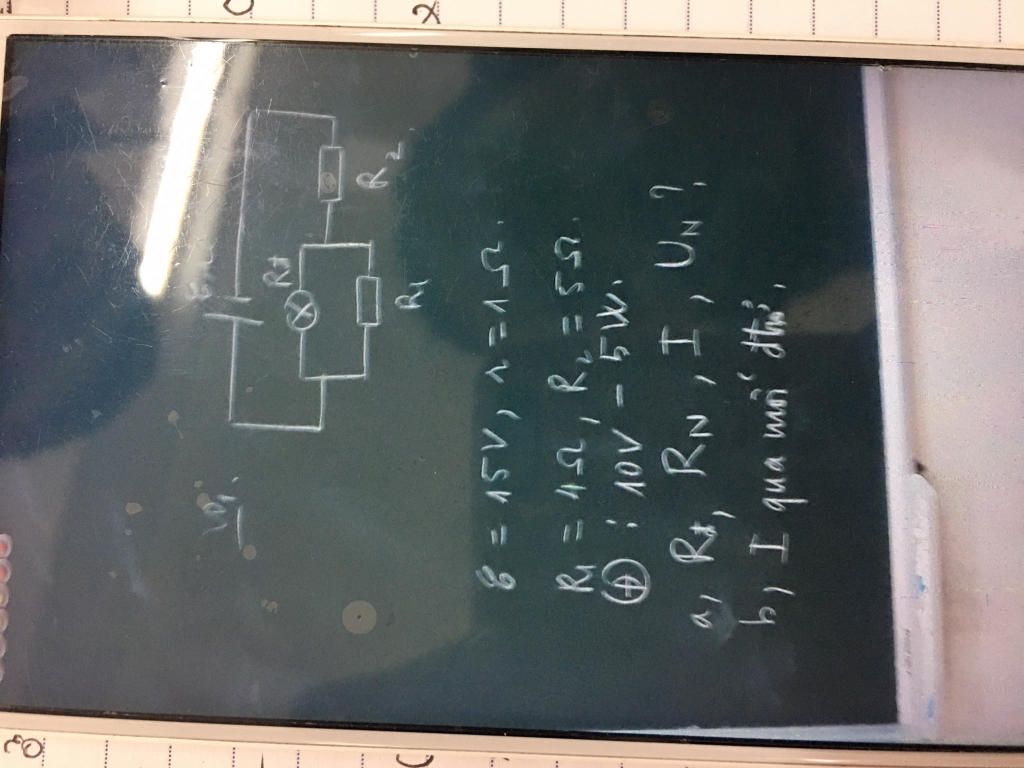 VD1.
R₂
Rđ
R₁
ℰ = 15V, r = 1Ω.
R₁ = 4Ω, R₂ = 5Ω.
Đ : 10V – 5W.
a, Rđ, RN, I, UN ?
b, I qua mỗi đtrở.